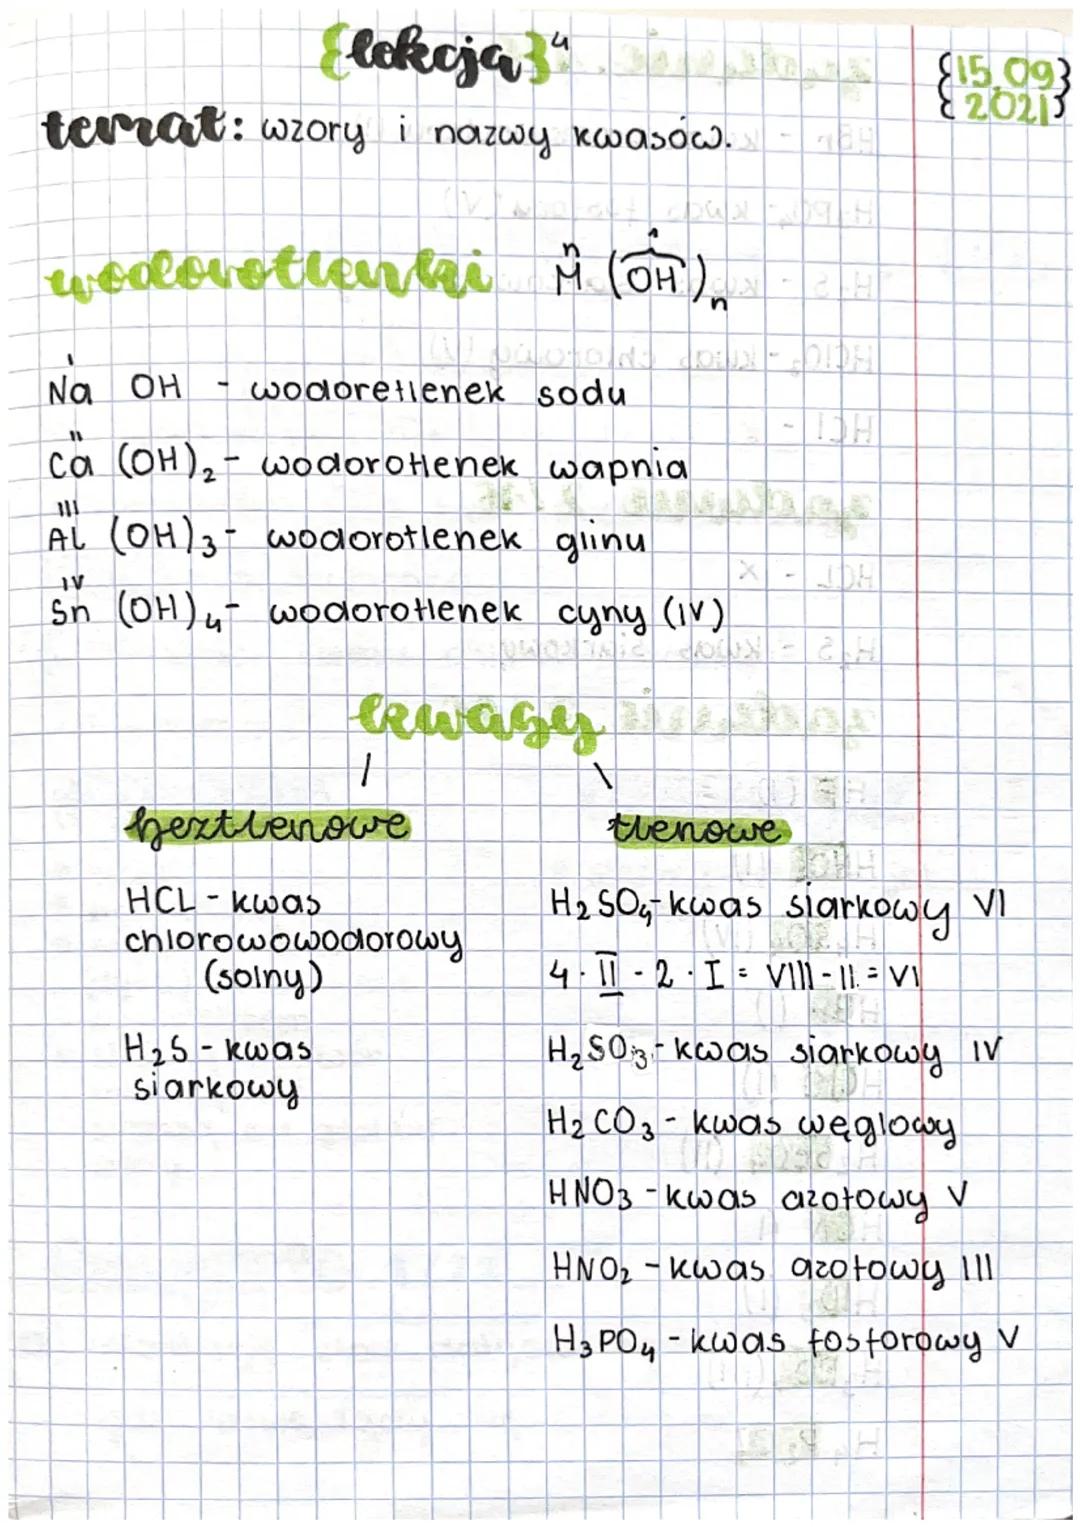 {lekcja}4
{15.09
2021}
temat: wzory i nazwy kwasów.
wodorotlenki n M (OH)n
I
Na OH - wodoretlenek sodu
II
Ca (OH)₂ - wodorotlenek wapnia
III
AL (OH)3 - wodorotlenek glinu
IV
Sn (OH)4 - wodorotlenek cyny (IV)
kwasy
/ \
beztlenowe tlenowe
HCL - kwas
chlorowowodorowy
(solny)
H₂S - kwas
siarkowy
H₂SO₄ - kwas siarkowy VI
4 · II - 2 · I = VIII - II = VI
H₂SO₃ - kwas siarkowy IV
H₂CO₃ - kwas węglowy
HNO3 - kwas azotowy V
HNO₂ - kwas azotowy III
H₃PO₄ - kwas fosforowy V